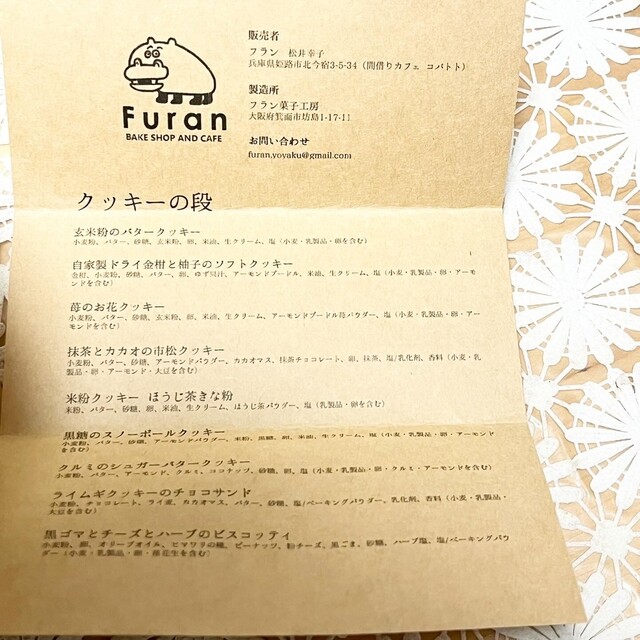 Furan
BAKE SHOP AND CAFE
販売者
フラン 松井幸子
兵庫県姫路市北今宿3-5-34(間借りカフェ コバトト)
製造所
フラン菓子工房
大阪府箕面市坊島1-17-11
お問い合わせ
furan.yoyaku@gmail.com
クッキーの段
玄米粉のバタークッキー
小麦粉、バター、砂糖、玄米粉、卵、米油、生クリーム、塩(小麦・乳製品・卵を含む)
自家製ドライ金柑と柚子のソフトクッキー
金柑、小麦粉、砂糖、バター、卵、ゆず果汁、アーモンドプードル、米油、生クリーム、塩(小麦・乳製品・卵・アーモ
ンドを含む)
苺のお花クッキー
小麦粉、バター、砂糖、玄米粉、卵、米油、生クリーム、アーモンドプードル苺パウダー、塩(小麦・乳製品・卵・アー
モンドを含む)
抹茶とカカオの市松クッキー
小麦粉、バター、砂糖、アーモンドパウダー、カカオマス、抹茶チョコレート、卵、抹茶、塩/乳化剤、香料(小麦・乳
製品・卵・アーモンド・大豆を含む)
米粉クッキー ほうじ茶きな粉
米粉、バター、砂糖、卵、米油、生クリーム、ほうじ茶パウダー、塩(乳製品・卵を含む)
黒糖のスノーボールクッキー
小麦粉、バター、砂糖、アーモンドパウダー、米粉、黒糖、卵、米油、生クリーム、塩(小麦・乳製品・卵・アーモンド
を含む)
クルミのシュガーバタークッキー
小麦粉、バター、アーモンド、クルミ、ココナッツ、砂糖、卵、塩(小麦・乳製品・卵・クルミ・アーモンドを含む)
ライムギクッキーのチョコサンド
小麦粉、チョコレート、ライ麦、カカオマス、バター、砂糖、塩/ベーキングパウダー、乳化剤、香料(小麦・乳製品・
大豆を含む)
黒ゴマとチーズとハーブのビスコッティ
小麦粉、卵、オリーブオイル、ヒマワリの種、ピーナッツ、粉チーズ、黒ごま、砂糖、ハーブ塩、塩/ベーキングパウ
ダー(小麦・乳製品・卵・落花生を含む)